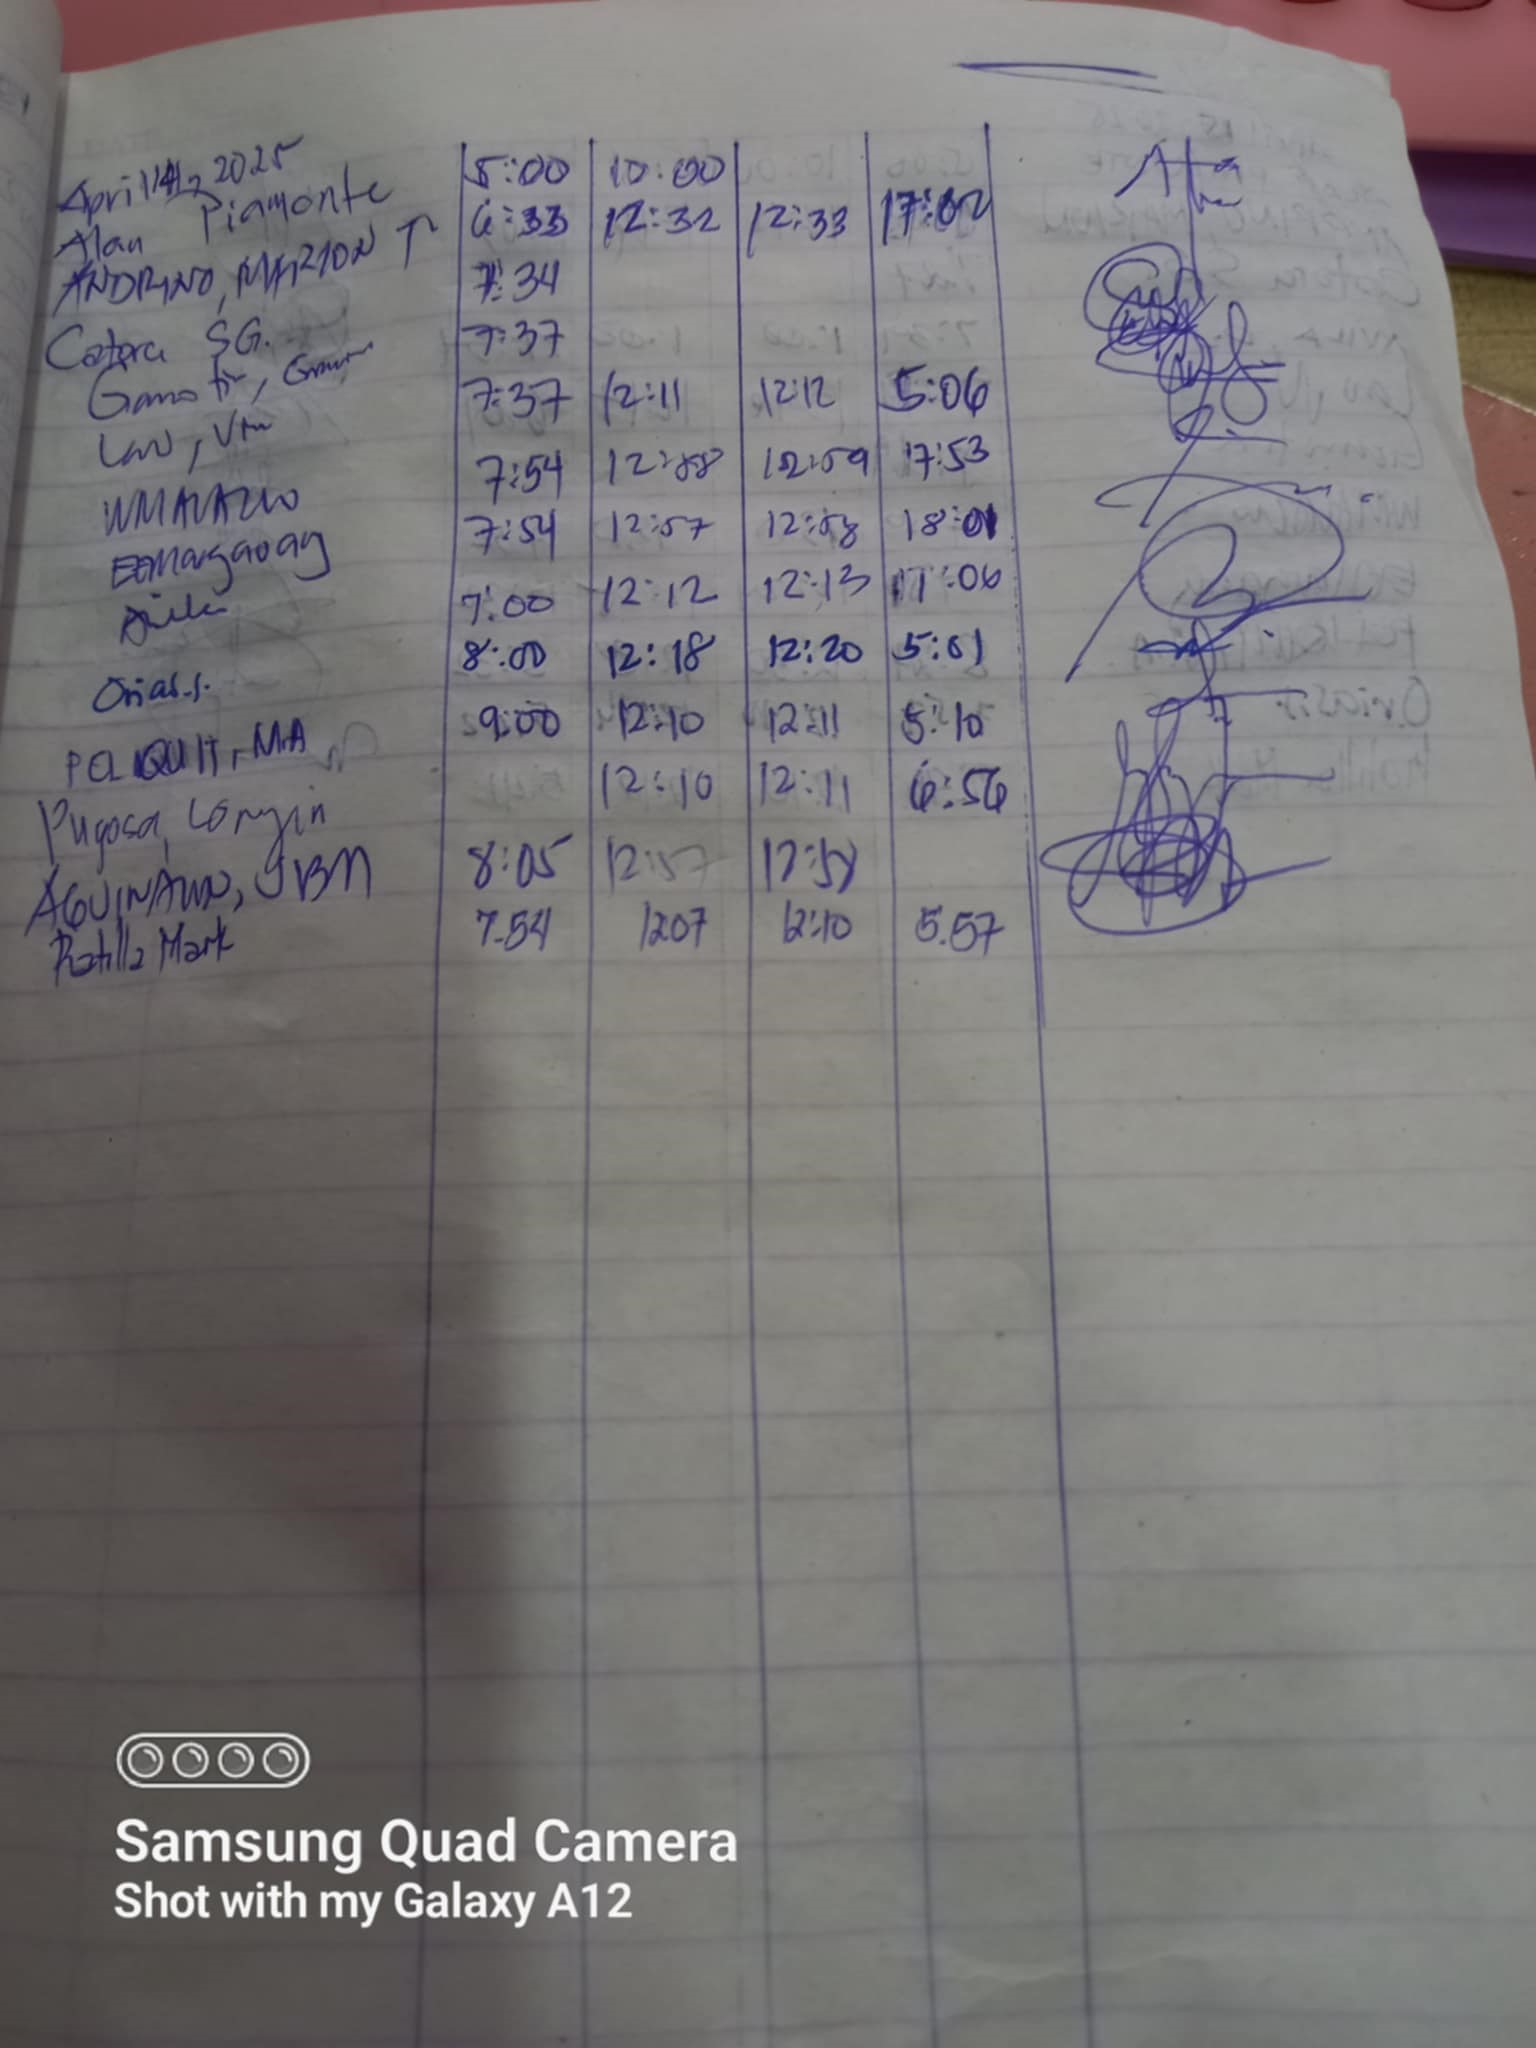 April 14, 2025
Alan Piamonte 5:00 10:00
ANDRINO, MARION T 6:33 12:32 12:33 17:02
Catera SG. 7:34
Gamotin, 7:37
Law, 7:37 12:11 12:12 5:06
7:54 12:58 12:59 17:53
7:54 12:57 12:58 18:01
7:00 12:12 12:13 17:06
Orias.s. 8:00 12:18 12:20 5:01
POLIQUIT, MA 9:00 12:10 12:11 5:10
Pugosa, 12:10 12:11 6:56
AGUINALDO, JBM 8:05 12:57 12:58
Ratilla Mark 7.54 1207 12:10 5.57
Samsung Quad Camera
Shot with my Galaxy A12